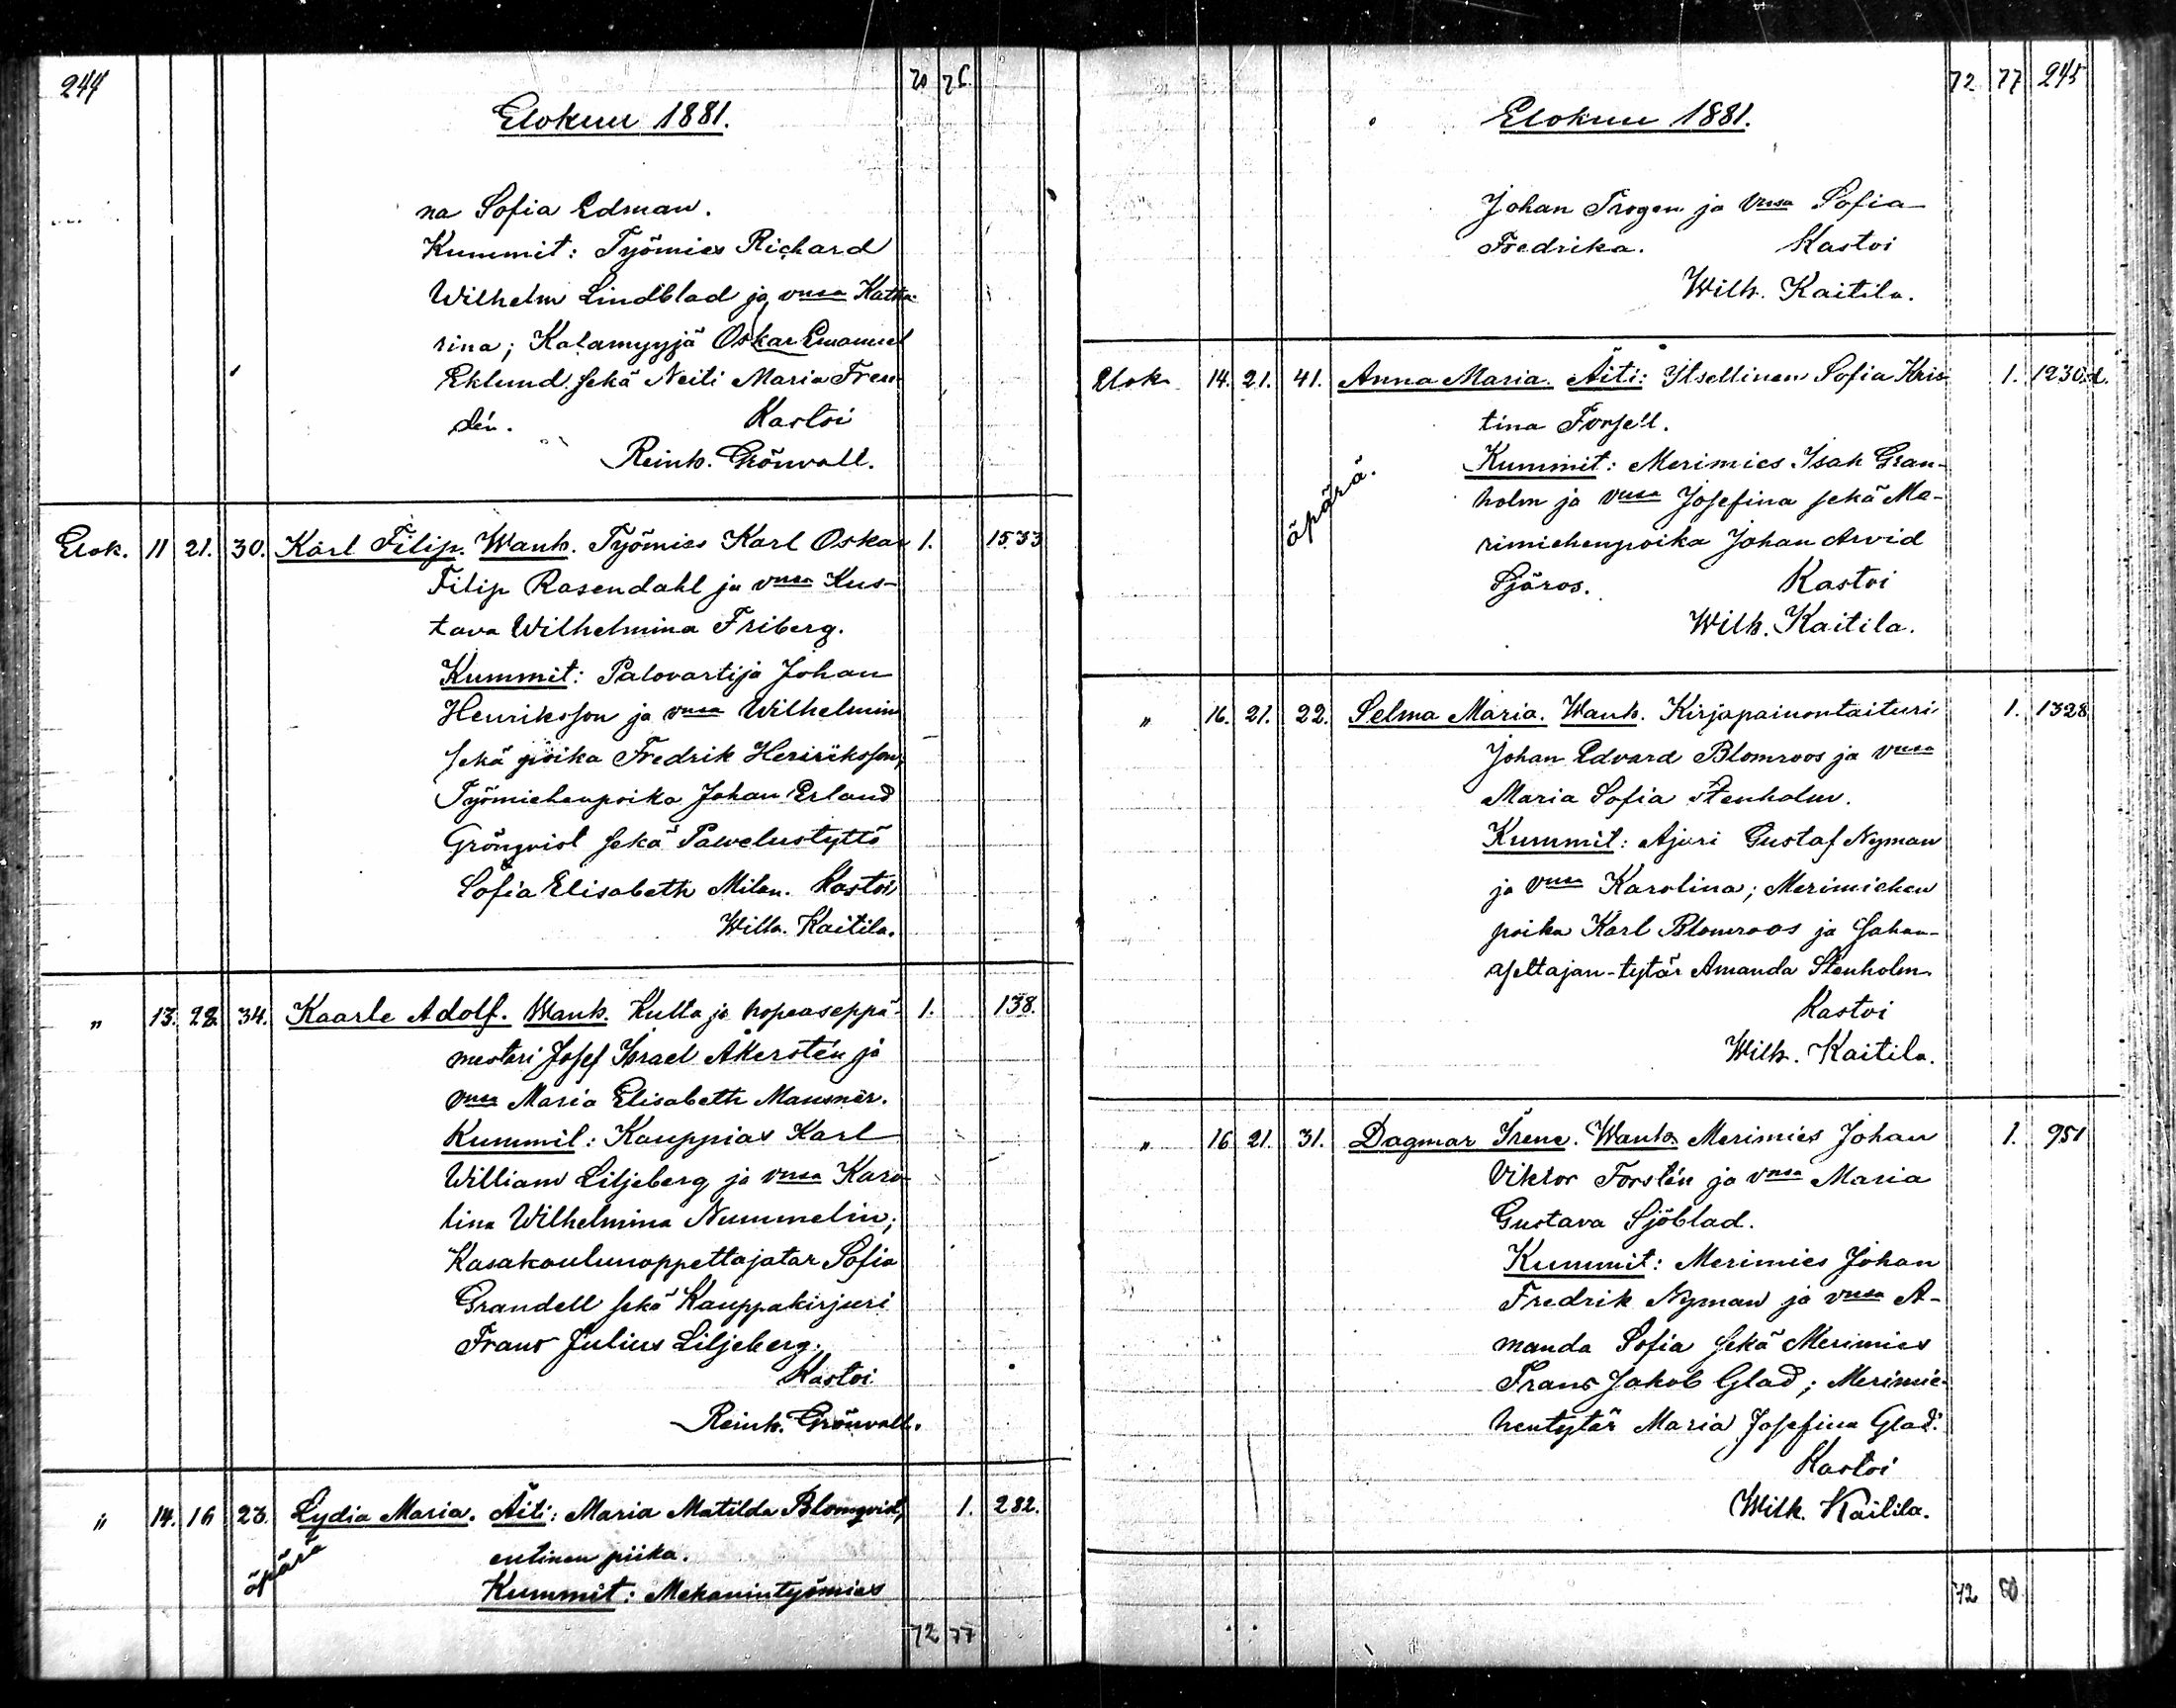 244 70 76.
Elokuu 1881.
na Sofia Edman.
Kummit: Työmies Richard
Wilhelm Lindblad ja vmsa Katha-
rina; Kalamyyjä Oskar Emanuel
Eklund sekä Neiti Maria Fren-
dén. Kastoi
Reinh. Grönvall.
Elok. 11 21. 30. Karl Filip. Wanh. Työmies Karl Oskar 1. 1533
Filip Rosendahl ja vmsa Kus-
tava Wilhelmina Friberg.
Kummit: Palovartija Johan
Henriksson ja vmsa Wilhelmina
sekä poika Fredrik Henriksson,
Työmiehenpoika Johan Erland
Grönqvist sekä Palvelustyttö
Sofia Elisabeth Milen. Kastoi
Wilh. Kaitila.
" 13. 28. 34. Kaarle Adolf. Wanh. Kulta ja hopeaseppä- 1. 138.
mestari Josef Israel Åkerstén ja
vmsa Maria Elisabeth Mausnér.
Kummit: Kauppias Karl
William Liljeberg ja vmsa Karo-
lina Wilhelmina Nummelin;
Kasakoulunoppettajatar Sofia
Grandell sekä Kauppakirjuri
Frans Julius Liljeberg.
Kastoi
Reinh. Grönvall.
" 14. 16 23. Lydia Maria. Äiti: Maria Matilda Blomqvist, 1. 282.
äpärä
entinen piika.
Kummit: Mekanintyömies
72 77
72 77 245
Elokuu 1881.
Johan Trogen ja vmsa Sofia
Fredrika. Kastoi
Wilh. Kaitila.
Elok. 14. 21. 41. Anna Maria. Äiti: Itsellinen Sofia Kris- 1. 1230.d.
tina Forsell.
äpärä.
Kummit: Merimies Isak Gran-
holm ja vmsa Josefina sekä Me-
rimiehenpoika Johan Arvid
Sjöros. Kastoi
Wilh. Kaitila.
" 16. 21. 22. Selma Maria. Wanh. Kirjapainontaituri 1. 1328
Johan Edvard Blomroos ja vmsa
Maria Sofia Stenholm.
Kummit: Ajuri Gustaf Nyman
ja vmsa Karolina; Merimiehen
poika Karl Blomroos ja Sahan-
asettajan-tytär Amanda Stenholm.
Kastoi
Wilh. Kaitila.
" 16 21. 31. Dagmar Irene. Wanh. Merimies Johan 1. 951
Viktor Forstén ja vmsa Maria
Gustava Sjöblad.
Kummit: Merimies Johan
Fredrik Nyman ja vmsa A-
manda Sofia sekä Merimies
Frans Jakob Glad; Merimie-
hentytär Maria Josefina Glad.
Kastoi
Wilh. Kaitila.
72 80.